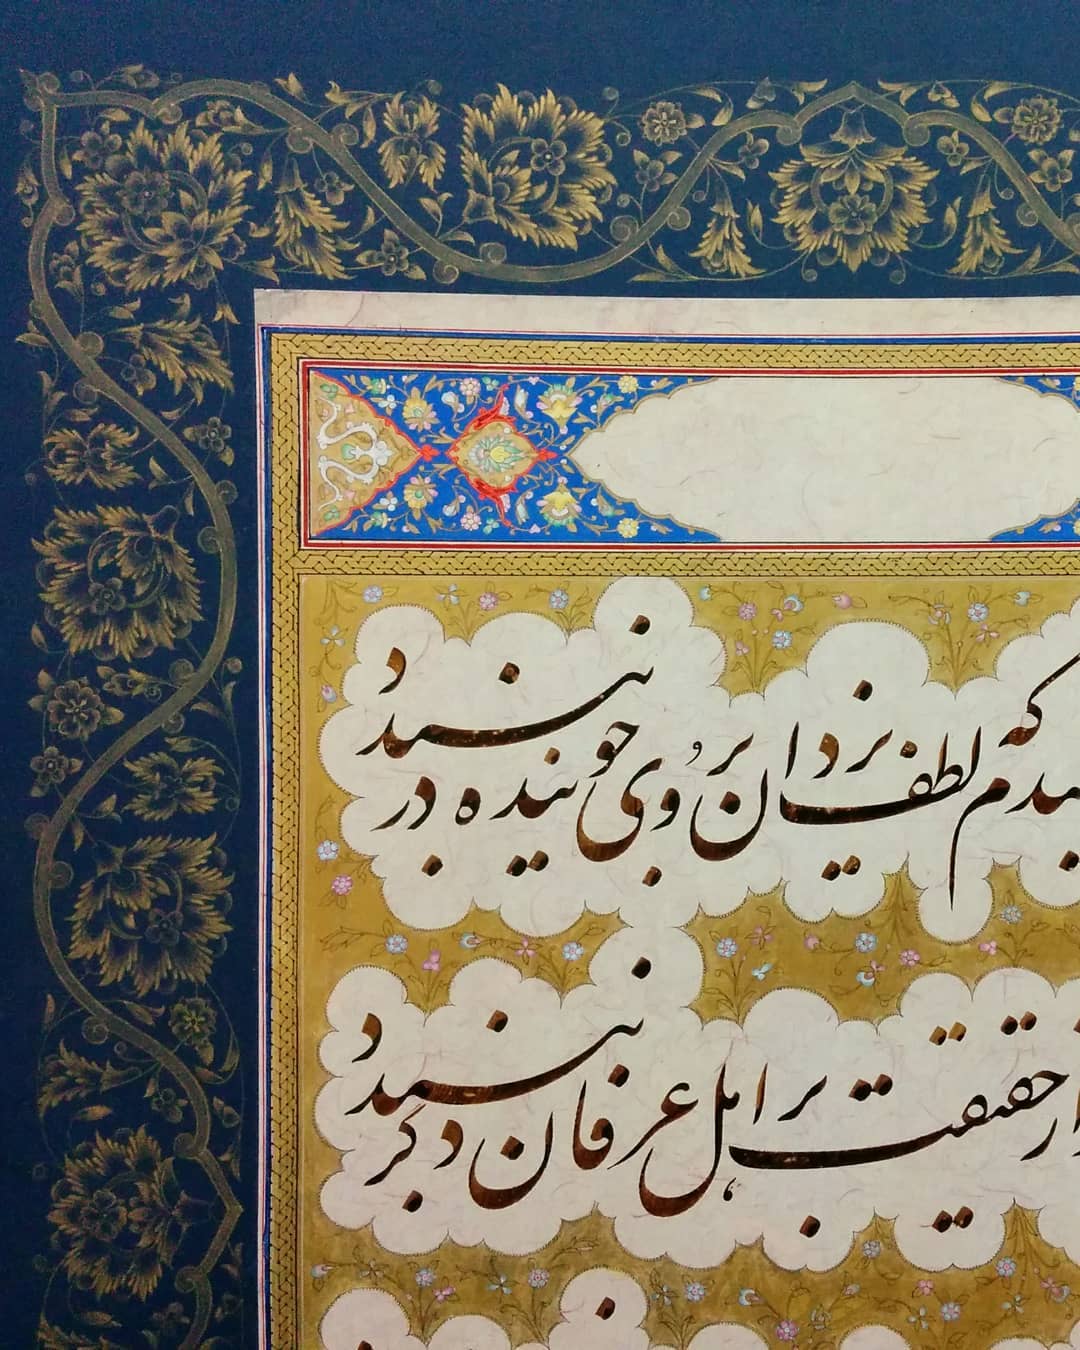 که لطف یزدان بروی جوینده در نبندد
از حقیقت بر اهل عرفان دگر نبندد